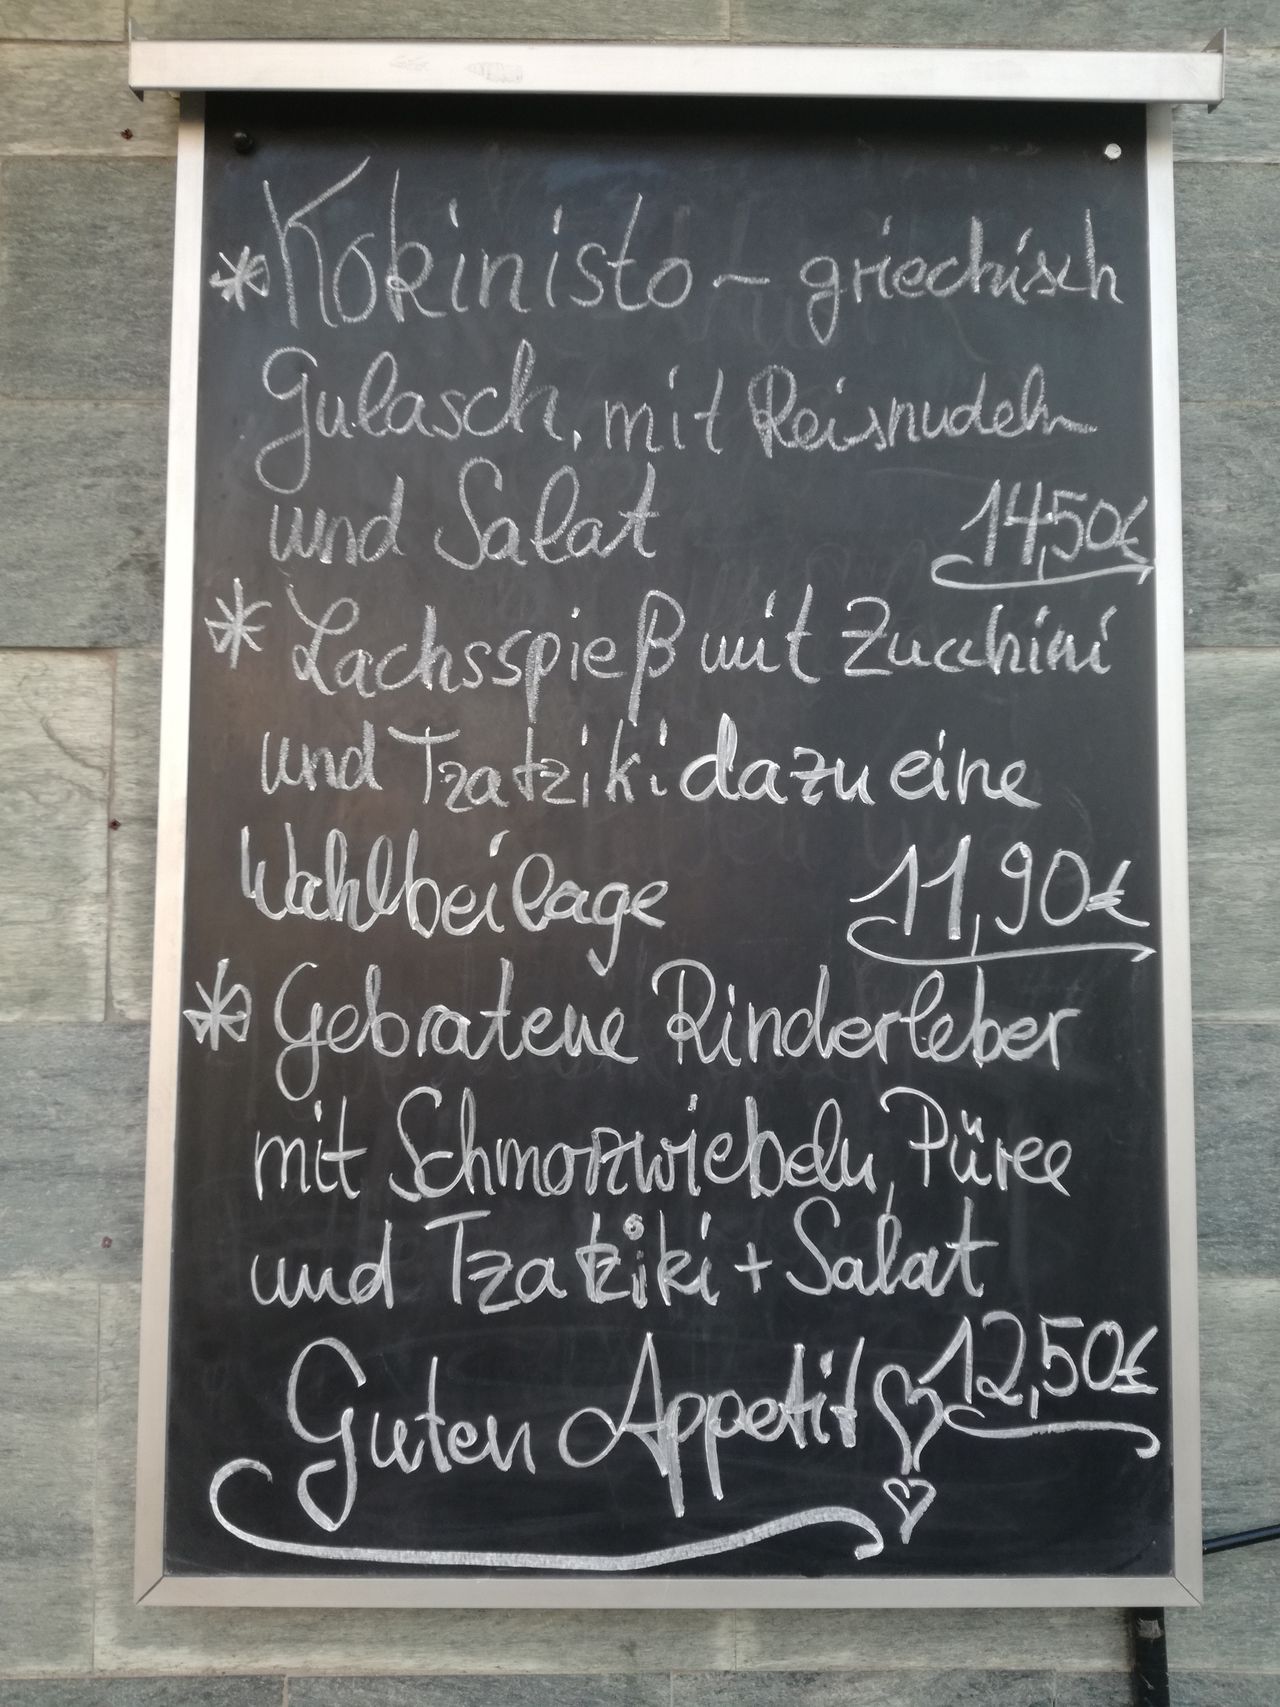 * Kokinisto - griechisch
Gulasch, mit Reisnudeln
und Salat 14,50€
* Lachsspieß mit Zucchini
und Tzatziki dazu eine
Wahlbeilage 11,90€
* Gebratene Rinderleber
mit Schmorzwiebeln, Püree
und Tzatziki + Salat
12,50€
Guten Appetit